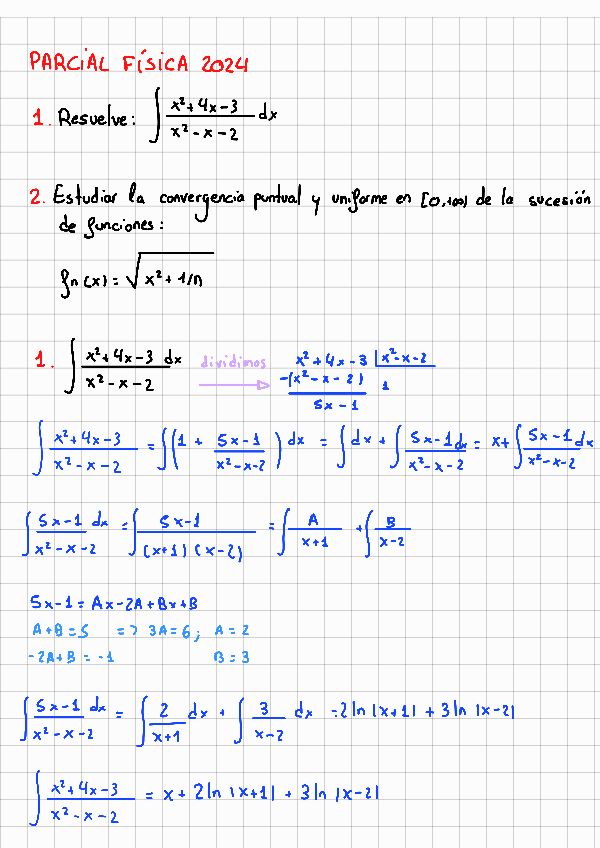 PARCIAL FÍSICA 2024
1. Resuelve: ∫ (x²+4x-3)/(x²-x-2) dx
2. Estudiar la convergencia puntual y uniforme en [0,+∞) de la sucesión
de funciones:
fn(x) = √(x²+1/n)
1. ∫ (x²+4x-3)/(x²-x-2) dx dividimos x²+4x-3 | x²-x-2
-(x²-x-2) 1
5x-1
∫ (x²+4x-3)/(x²-x-2) = ∫(1 + (5x-1)/(x²-x-2)) dx = ∫dx + ∫ (5x-1)/(x²-x-2) dx = x+ ∫ (5x-1)/(x²-x-2) dx
∫ (5x-1)/(x²-x-2) dx = ∫ (5x-1)/((x+1)(x-2)) = ∫ A/(x+1) + ∫ B/(x-2)
5x-1 = Ax-2A+Bx+B
A+B=5 => 3A=6; A=2
-2A+B=-1 B=3
∫ (5x-1)/(x²-x-2) dx = ∫ 2/(x+1) dx + ∫ 3/(x-2) dx = 2ln|x+1| + 3ln|x-2|
∫ (x²+4x-3)/(x²-x-2) = x + 2ln|x+1| + 3ln|x-2|